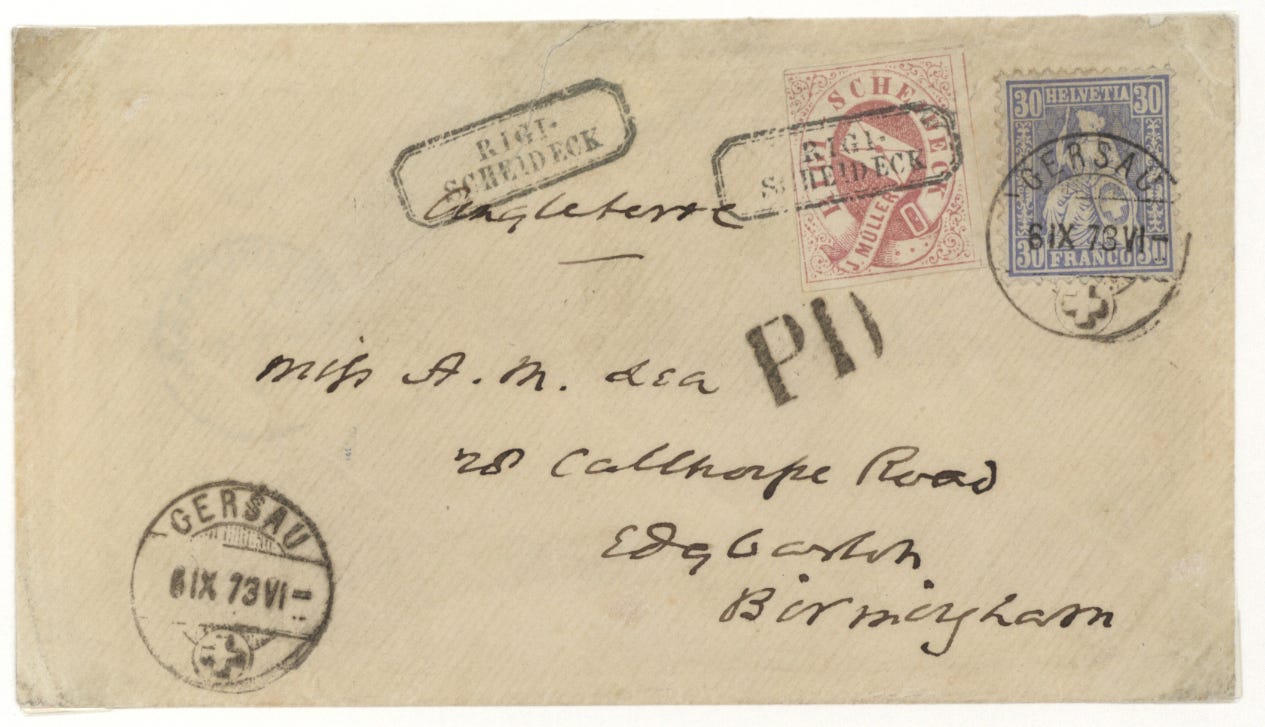 RIGI-
SCHEIDECK
RIGI SCHEIDECK
J. MÜLLER
RIGI-
SCHEIDECK
30 HELVETIA 30
30 FRANCO 30
GERSAU
6 IX 73 VI-
Angleterre
PD
Miss A. M. Lea
28 Callthorpe Road
Edgbaston
Birmingham
GERSAU
6 IX 73 VI-